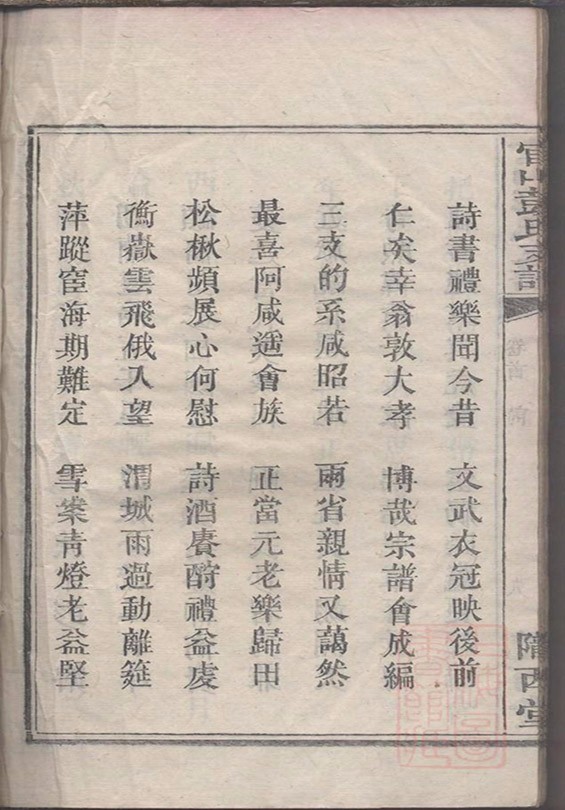 詩書禮樂聞今昔 文武衣冠映後前
仁矣幸翁敦大孝 博哉宗譜會成編
三支的系咸昭若 兩省親情又藹然
最喜阿咸適會族 正當元老樂歸田
松楸頻展心何慰 詩酒賡酧禮益虔
衡嶽雲飛俄入望 渭城雨過動離筵
萍蹤宦海期難定 雪案靑燈老益堅
彭氏支譜
卷首
隴西堂